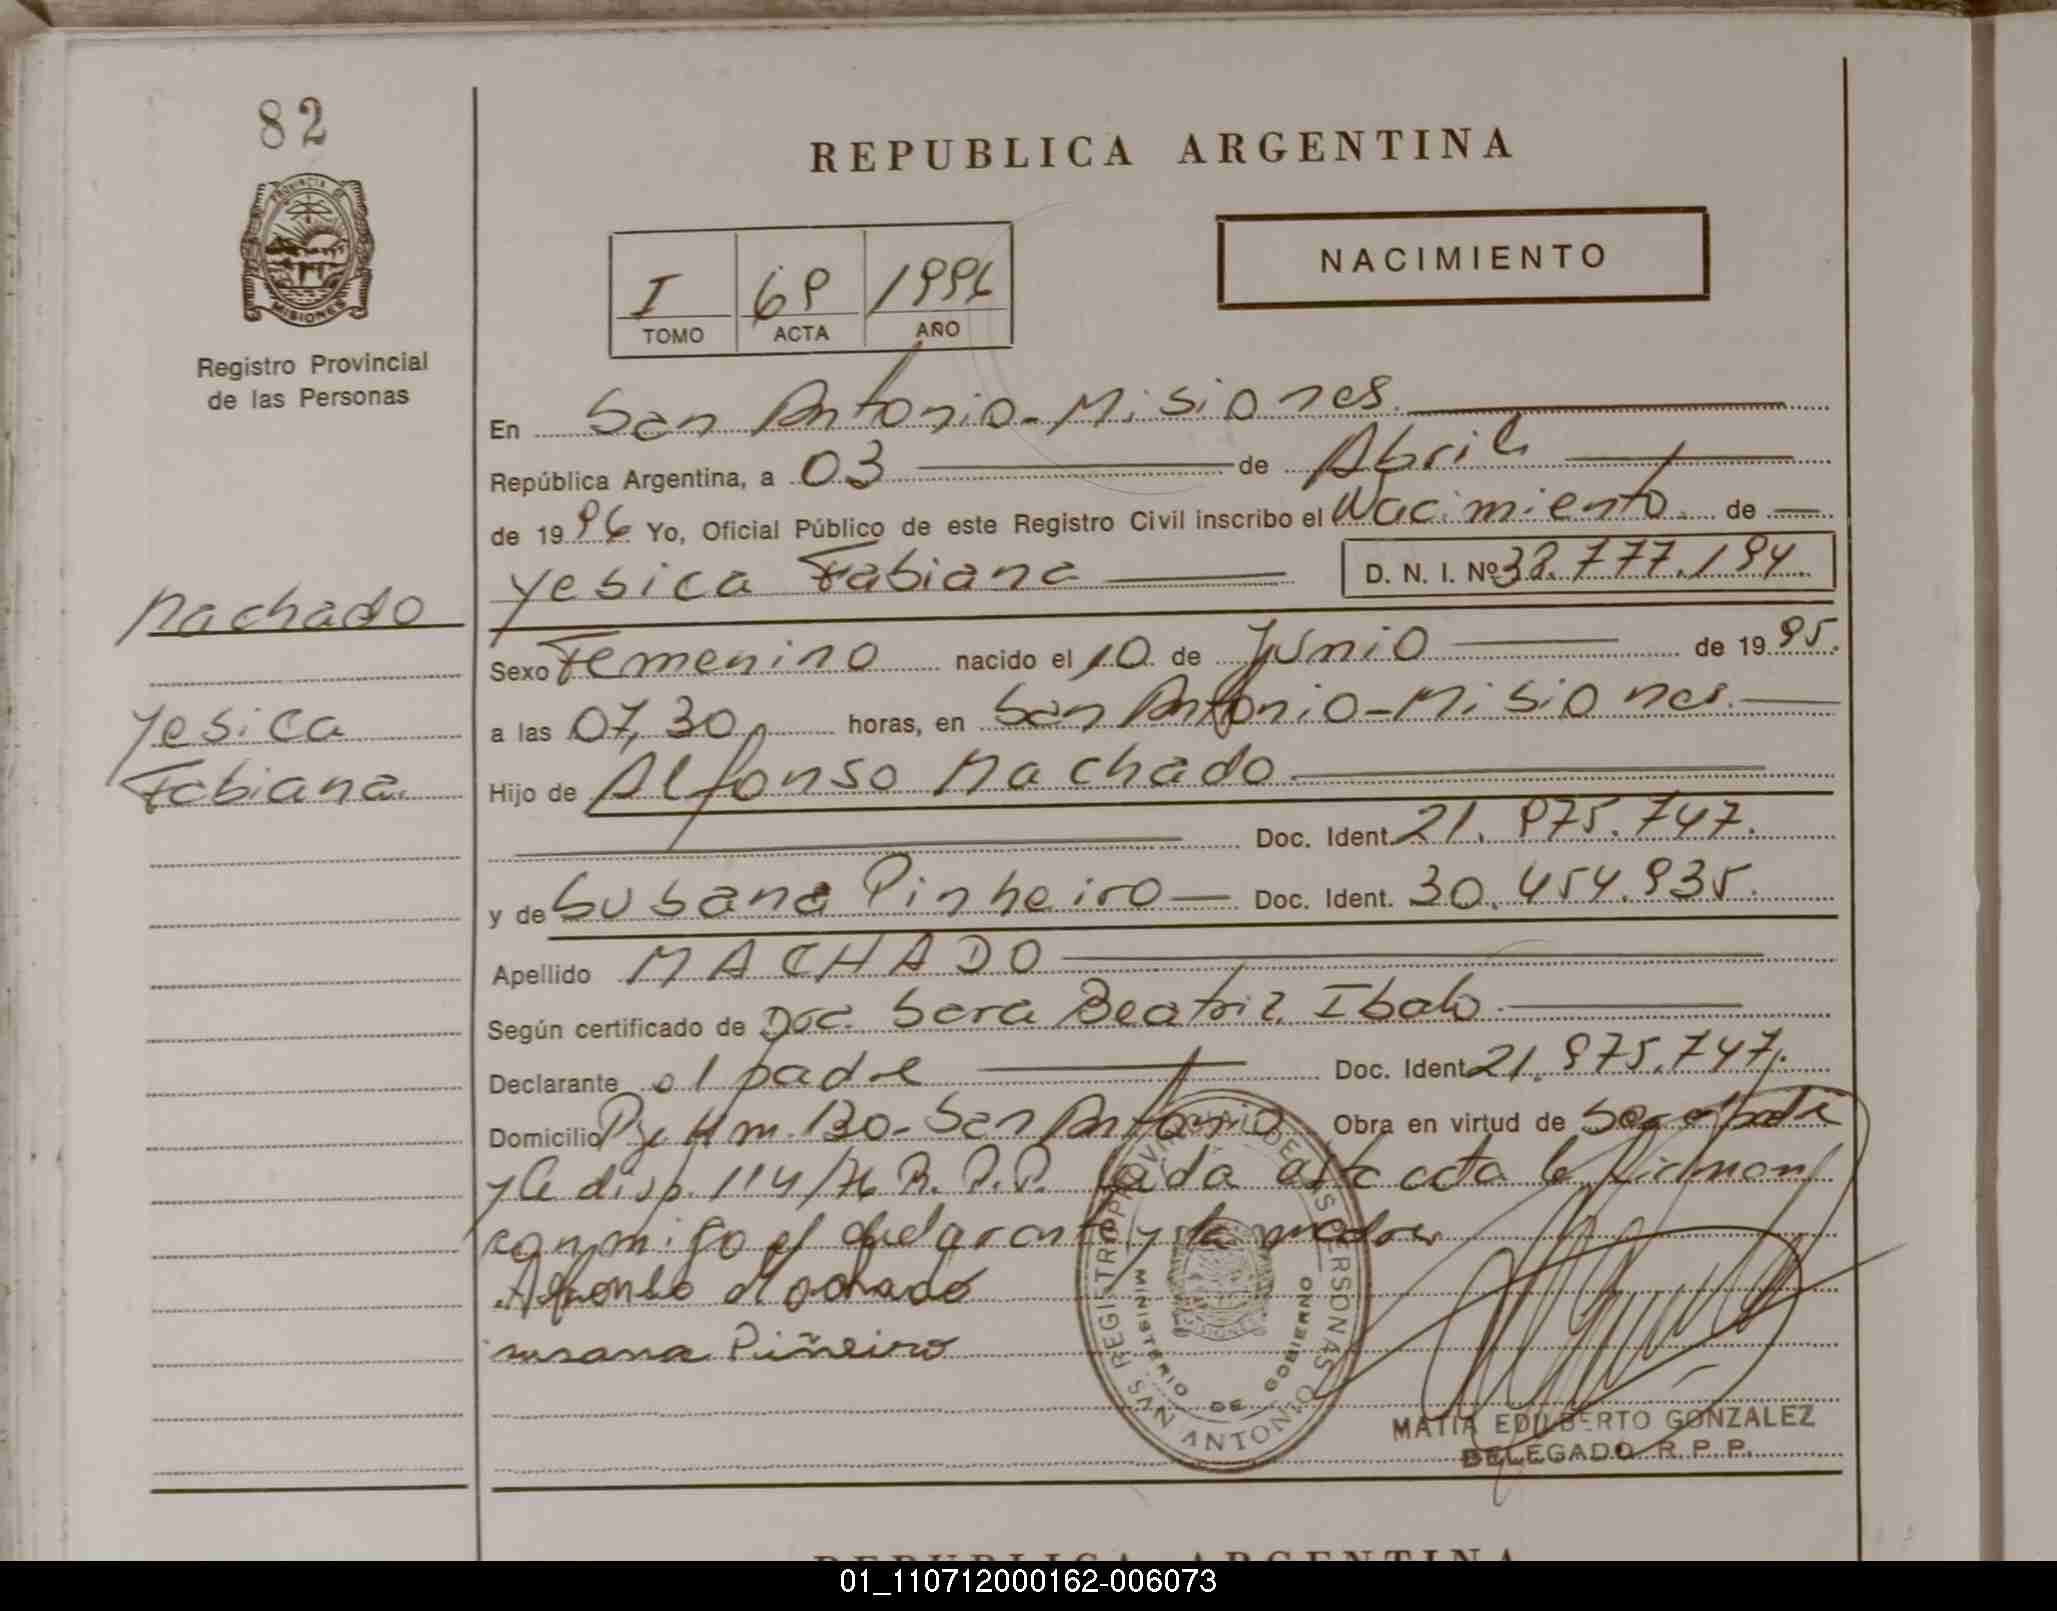 82
REPUBLICA ARGENTINA
PROVINCIA DE
MISIONES
Registro Provincial
de las Personas
NACIMIENTO
I 69 1996
TOMO ACTA AÑO
En San Antonio-Misiones.
República Argentina, a 03 de Abril
de 1996 Yo, Oficial Público de este Registro Civil inscribo el Nacimiento de
Yesica Fabiana D. N. I. Nº 38.777.194
Machado
Yesica
Fabiana.
Sexo Femenino nacido el 10 de Junio de 1995.
a las 07,30 horas, en San Antonio-Misiones.
Hijo de Alfonso Machado
Doc. Ident. 21.975.747.
y de Susana Pinheiro Doc. Ident. 30.454.935.
Apellido MACHADO
Según certificado de Doc. Sara Beatriz Ibalo
Declarante el padre Doc. Ident. 21.975.747.
Domicilio Pje Hm. 130-San Antonio Obra en virtud de
y la disp. 114/76 R.P.P. Leída esta acta la firman
conmigo el declarante y la madre
Alfonso Machado
susana Piñeiro
REGISTRO PROVINCIAL DE LAS PERSONAS
MINISTERIO DE GOBIERNO
MISIONES
SAN ANTONIO
MATIA EDILBERTO GONZALEZ
DELEGADO R.P.P.
REPUBLICA ARGENTINA
01_110712000162-006073